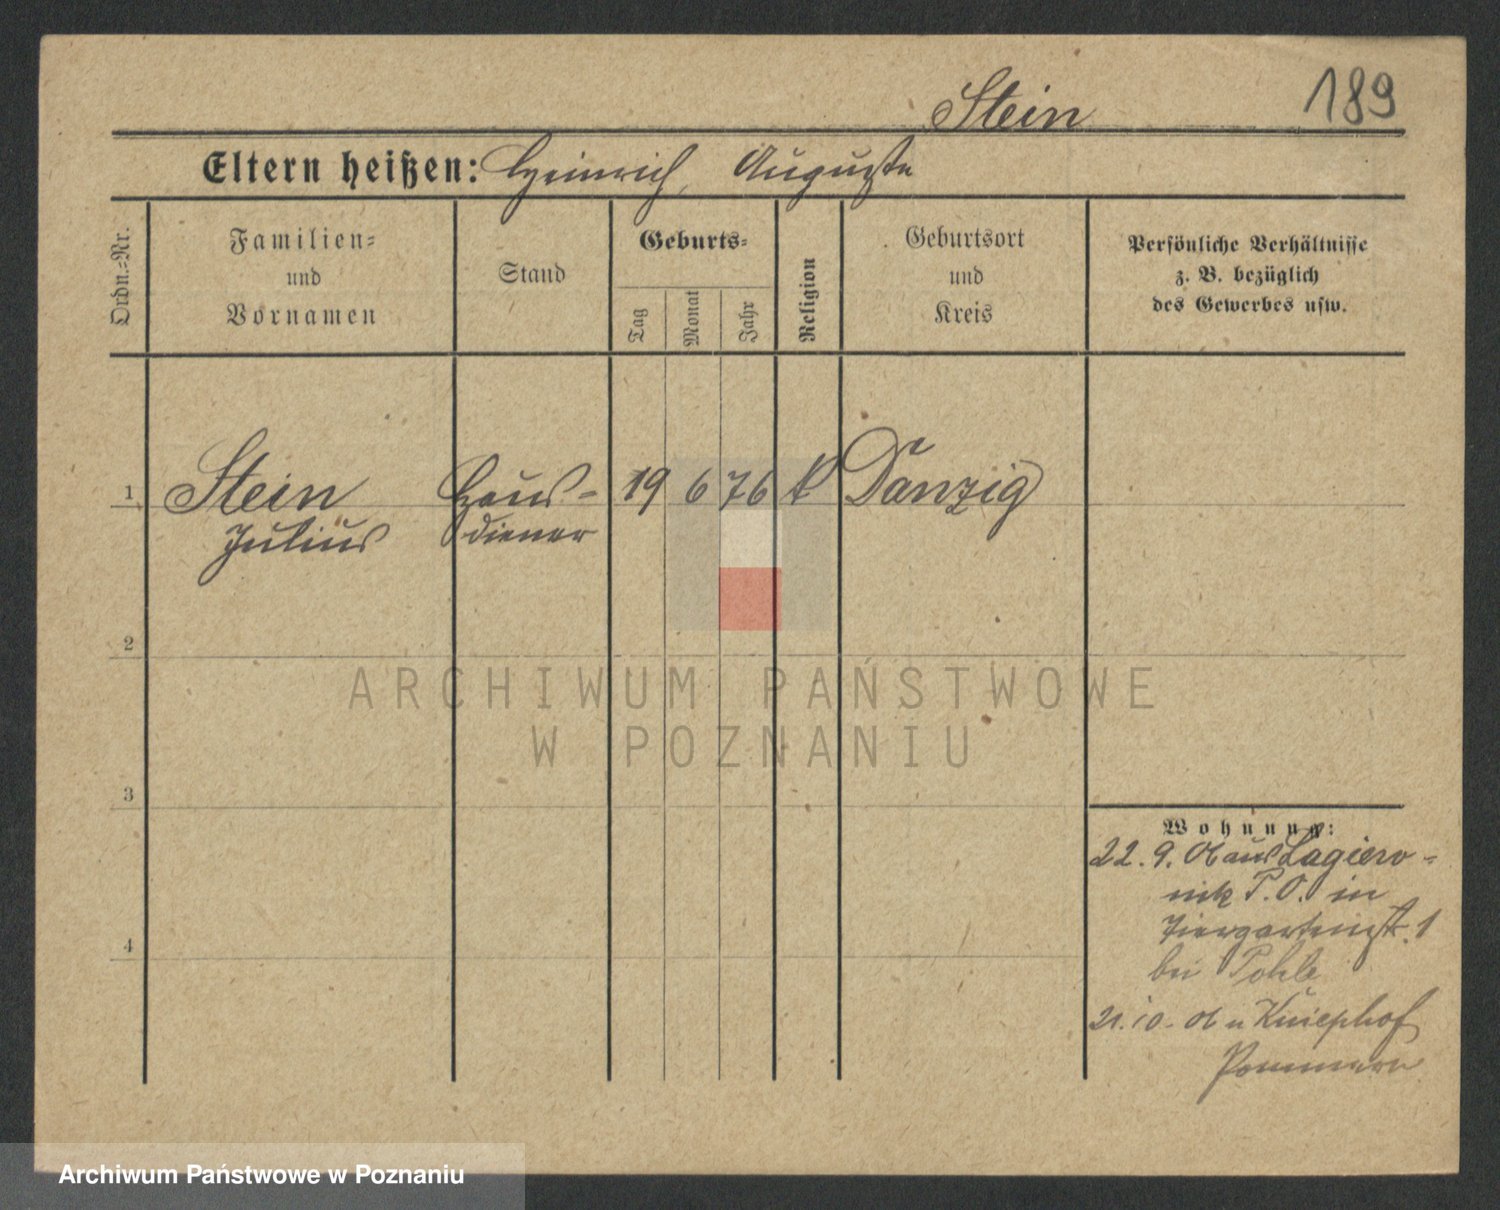 Stein 189
Eltern heißen: Heinrich, Auguste
Ordn.=Nr.
Familien=
und
Vornamen
Stand
Geburts=
Tag
Monat
Jahr
Religion
Geburtsort
und
Kreis
Persönliche Verhältnisse
z. B. bezüglich
des Gewerbes usw.
1 Stein Haus- 19 6 76 k Danzig
Julius diener
2
3
4
Wohnung:
22. 9. 06 aus Lagiew-
nik P. O. in
Tiergartenst. 1
bei Pohle
21. 10. 06 n Kniephof
Pommern
ARCHIWUM PAŃSTWOWE
W POZNANIU
Archiwum Państwowe w Poznaniu